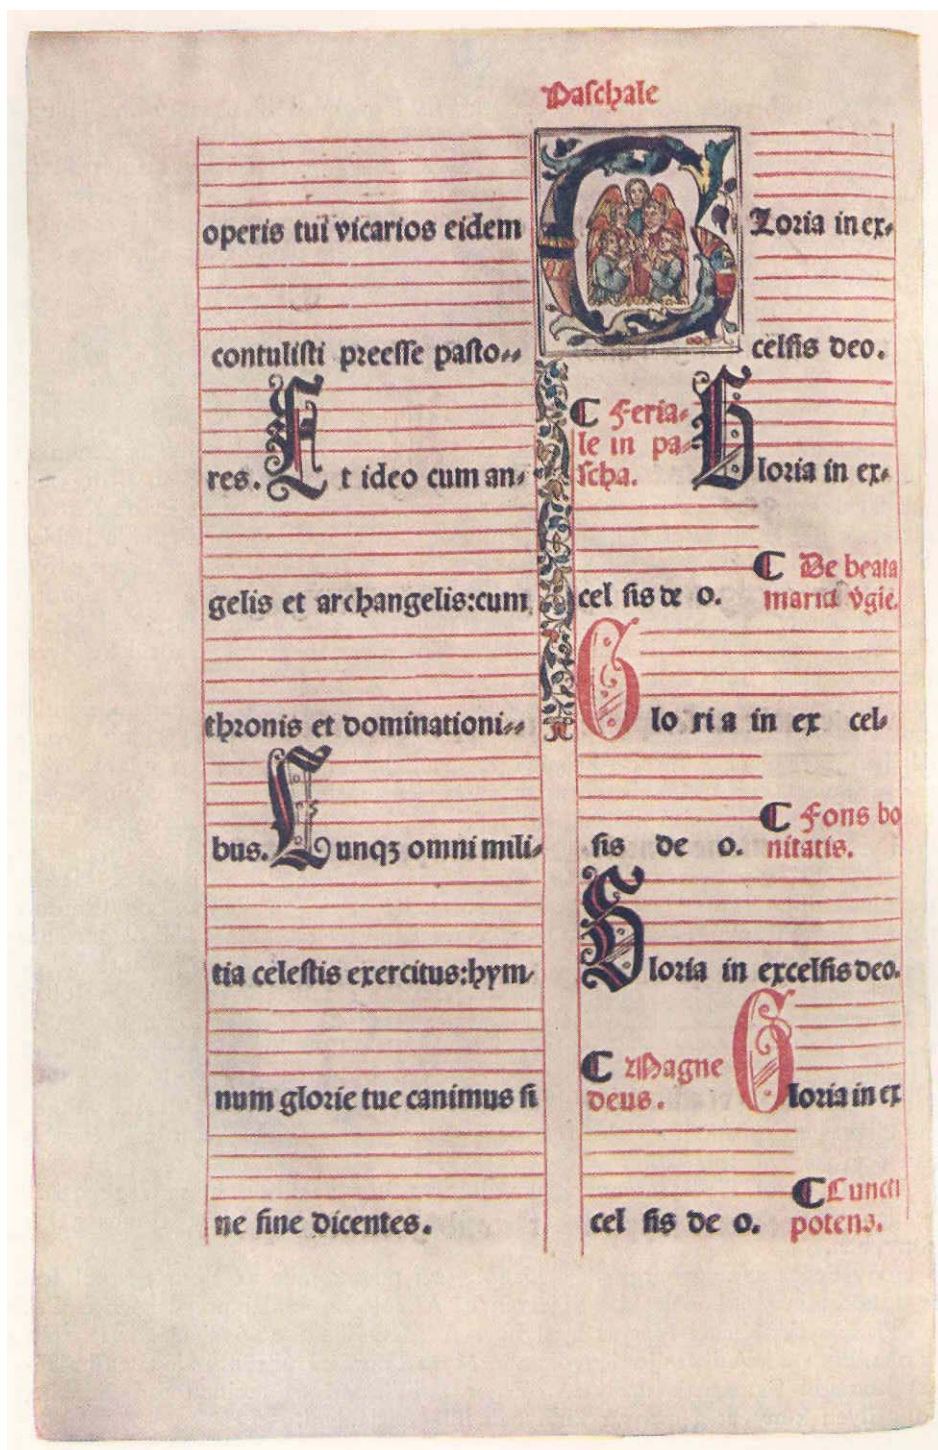 Paschale
operis tui vicarios eidem
contulisti preesse pasto⸗
res. Et ideo cum an⸗
gelis et archangelis:cum
thronis et dominationi⸗
bus. Cunqꝫ omni mili⸗
tia celestis exercitus:hym⸗
num glorie tue canimus si
ne fine dicentes.
Gloria in ex⸗
celsis deo.
¶ Feria⸗
le in pa⸗
scha.
Gloria in ex⸗
cel sis de o.
¶ De beata
maria v̄gie.
Glo ri a in ex cel⸗
sis de o.
¶ Fons bo
nitatis.
Gloria in excelsis deo.
¶ Magne
deus.
Gloria in ex
cel sis de o.
¶ Cuncti
potens.